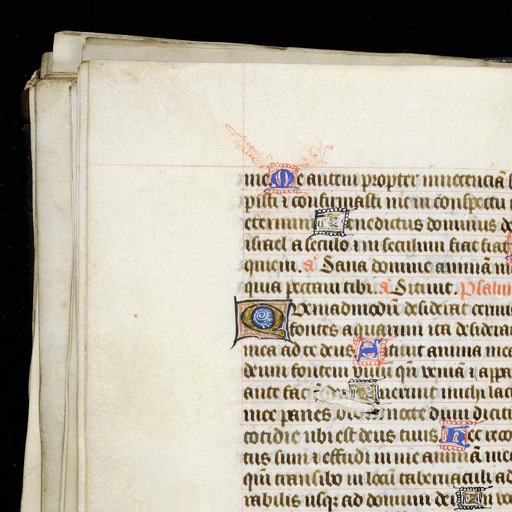 me Me autem propter innocenciã s
pisti ⁊ confirmasti me in conspectu
eternum Benedictus dominus de
israel a seculo ⁊ in seculum fiat fiat
quiem. aͣ Sana domine animã m
quia peccaui tibi. aͣ Sitiuit. Psalm
Quemadmodũ desiderat ceruus
fontes aquarum ita desiderat
mea ad te deus Sitiuit anima mea
deum fontem viuũ qñ veniã ⁊ appa
ante faciẽ dei Fuerunt michi lac
mee panes die ac nocte dum diciti
cotidie ubi est deus tuus Hec reco
tus sum ⁊ effudi in me animã mea
qm̃ transibo in locũ tabernaculi ad
rabilis usq̣ ad domum dei In vo